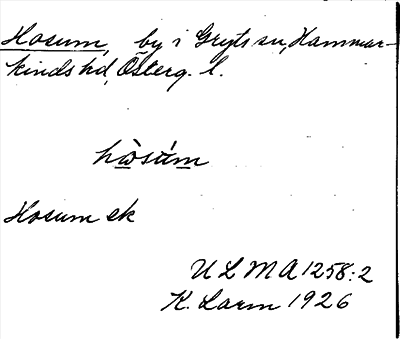 Hosum, by i Gryts sn, Hammar-
kinds hd, Österg. l.
hòsúm
Hosum ek
ULMA 1258:2
K. Larm 1926